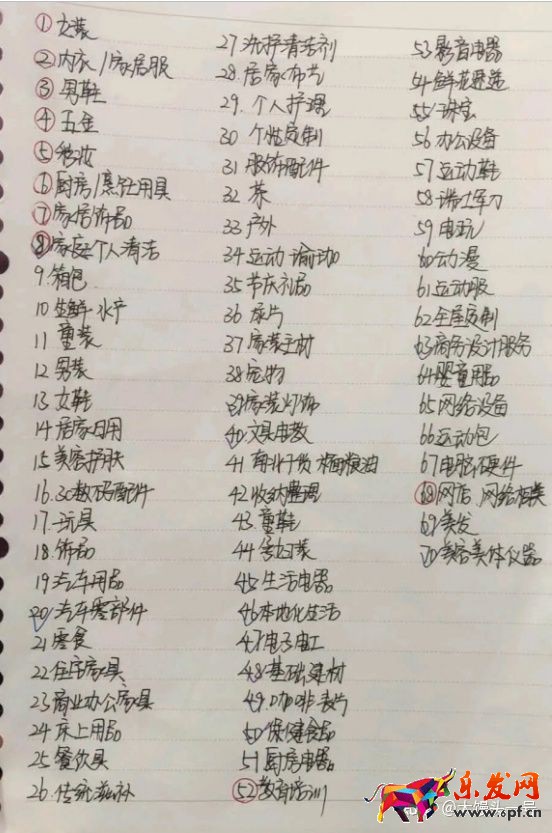 ① 女装
② 内衣/家居服
③ 男鞋
④ 五金
⑤ 彩妆
⑥ 厨房/烹饪用具
⑦ 家居饰品
⑧ 家庭个人清洁
9. 箱包
10 生鲜 水产
11 童装
12 男装
13 女鞋
14 居家日用
15 美容护肤
16. 3C数码配件
17. 玩具
18. 饰品
19 汽车用品
20 汽车零部件
21 零食
22 住宅家具
23 商业办公家具
24 床上用品
25 餐饮具
26. 传统滋补
27 洗护清洁剂
28. 居家布艺
29. 个人护理
30 个性定制
31 服饰配件
32 茶
33 户外
34 运动 瑜伽
35 节庆礼品
36 尿片
37 家装主材
38 宠物
39 家装灯饰
40 文具电教
41 南北干货 粮油
42 收纳整理
43. 童鞋
44 孕妇装
45 生活电器
46 本地化生活
47 电子电工
48 基础建材
49. 咖啡麦片
50 保健食品
51 厨房电器
52 教育培训
53 影音电器
54 鲜花速递
55 珠宝
56 办公设备
57 运动鞋
58 瑞士军刀
59 电玩
60 动漫
61 运动服
62 全屋定制
63 商务设计服务
64 婴童用品
65 网络设备
66 运动包
67 电脑硬件
68 网店 网络相关
69 美发
70 美容美体仪器
乐发网
www.6pf.cn